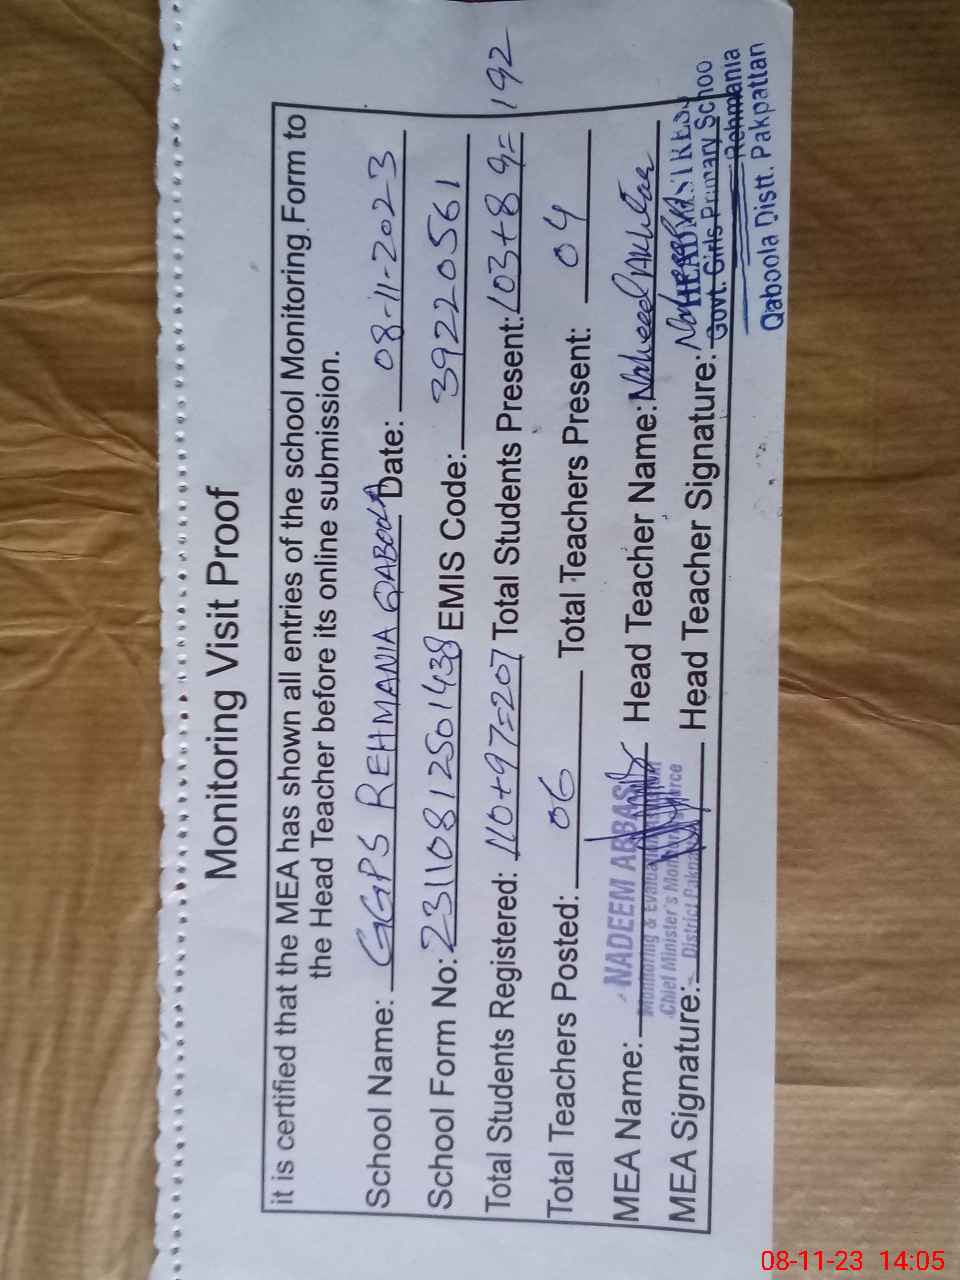 Monitoring Visit Proof
it is certified that the MEA has shown all entries of the school Monitoring Form to
the Head Teacher before its online submission.
School Name: GGPS REHMANIA QABOOLA Date: 08-11-2023
School Form No: 23110812501438 EMIS Code: 39220561
Total Students Registered: 110+97=207 Total Students Present: 103+89=192
Total Teachers Posted: 06 Total Teachers Present: 04
MEA Name: NADEEM ABBAS Head Teacher Name: Naheed Akhtar
Monitoring & Evaluation
Chief Minister's Monitoring Force
District Pakpattan
MEA Signature: Head Teacher Signature:
HEADMISTRESS
Govt. Girls Primary School
Rehmania
Qaboola Distt. Pakpattan
08-11-23 14:05